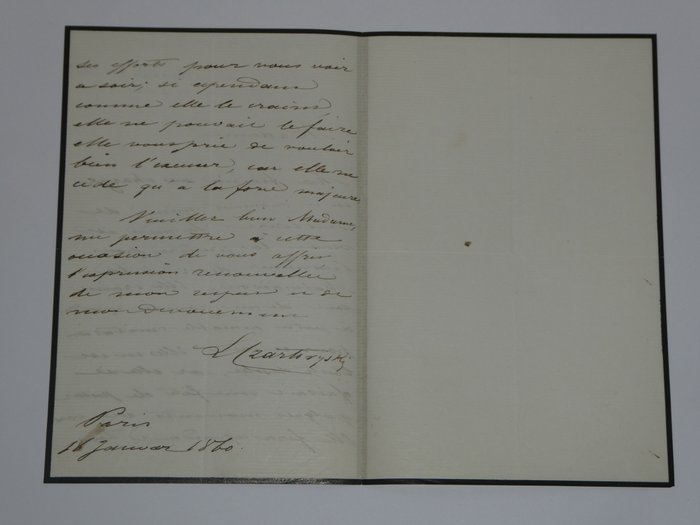 ses efforts pour vous voir
ce soir; si cependant
comme elle le craint,
elle ne pouvait le faire
elle vous prie de vouloir
bien l'excuser, car elle ne
cède qu'a la force majeure
Veuillez bien Madame,
me permettre à cette
occasion de vous offrir
l'expression renouvellée
de mon respect et de
mon dévouement
L Czartoryski
Paris
16 Janvier 1860.